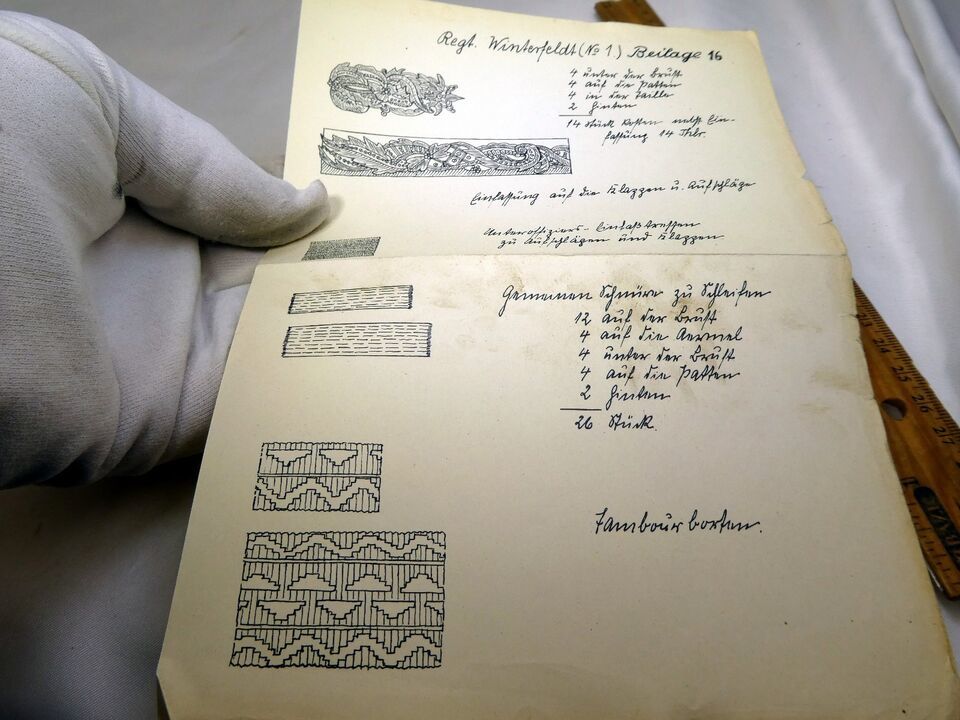 Regt. Winterfeldt (No 1.) Beilage 16
4 unter der Brust
4 auf die Patten
4 in der Taille
2 hinten
14 Stück kosten nebst Ein-
fassung 14 Thr.
Einfassung auf die Klappen u. Aufschläge
Unteroffiziers-Einfaßtressen
zu Aufschlägen und Klappen.
Gemeinen Schnüre zu Schleifen
12 auf der Brust
4 auf die Aermel
4 unter der Brust
4 auf die Patten
2 hinten
26 Stück.
Tambourborten.
23
24
25
26
27